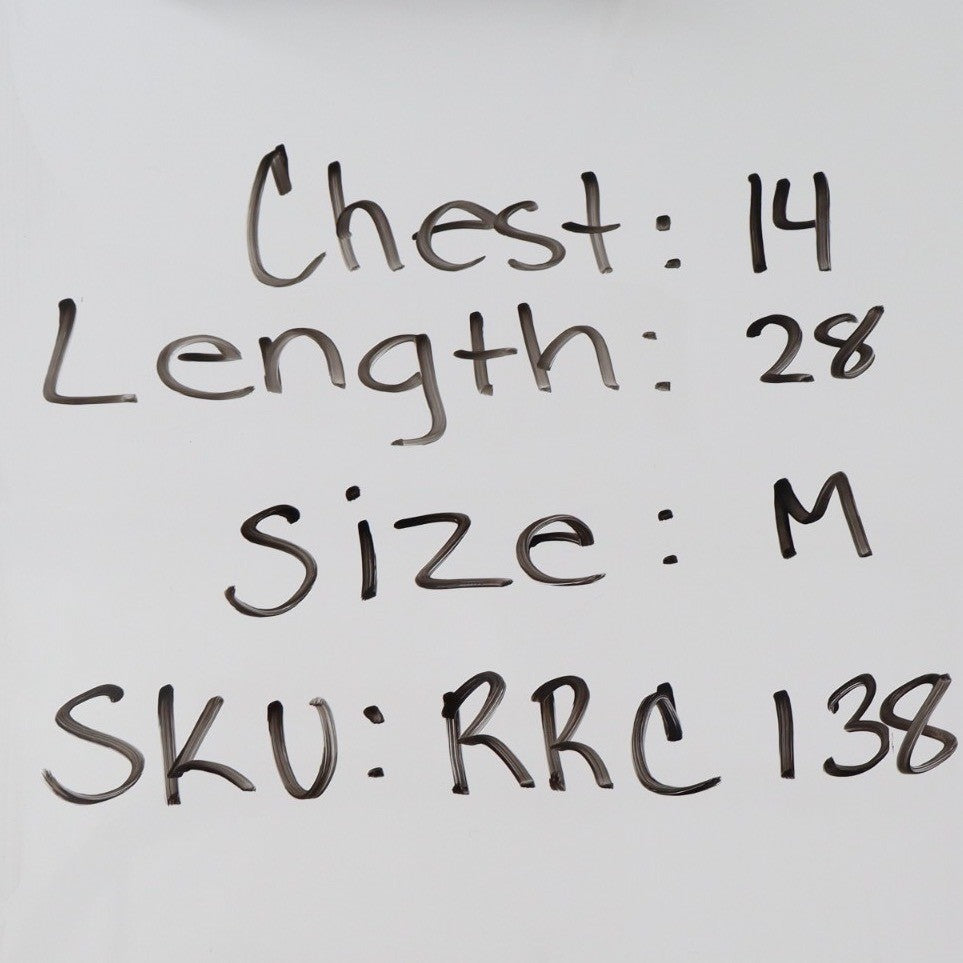 Chest: 14
Length: 28
Size: M
SKU: RRC 138